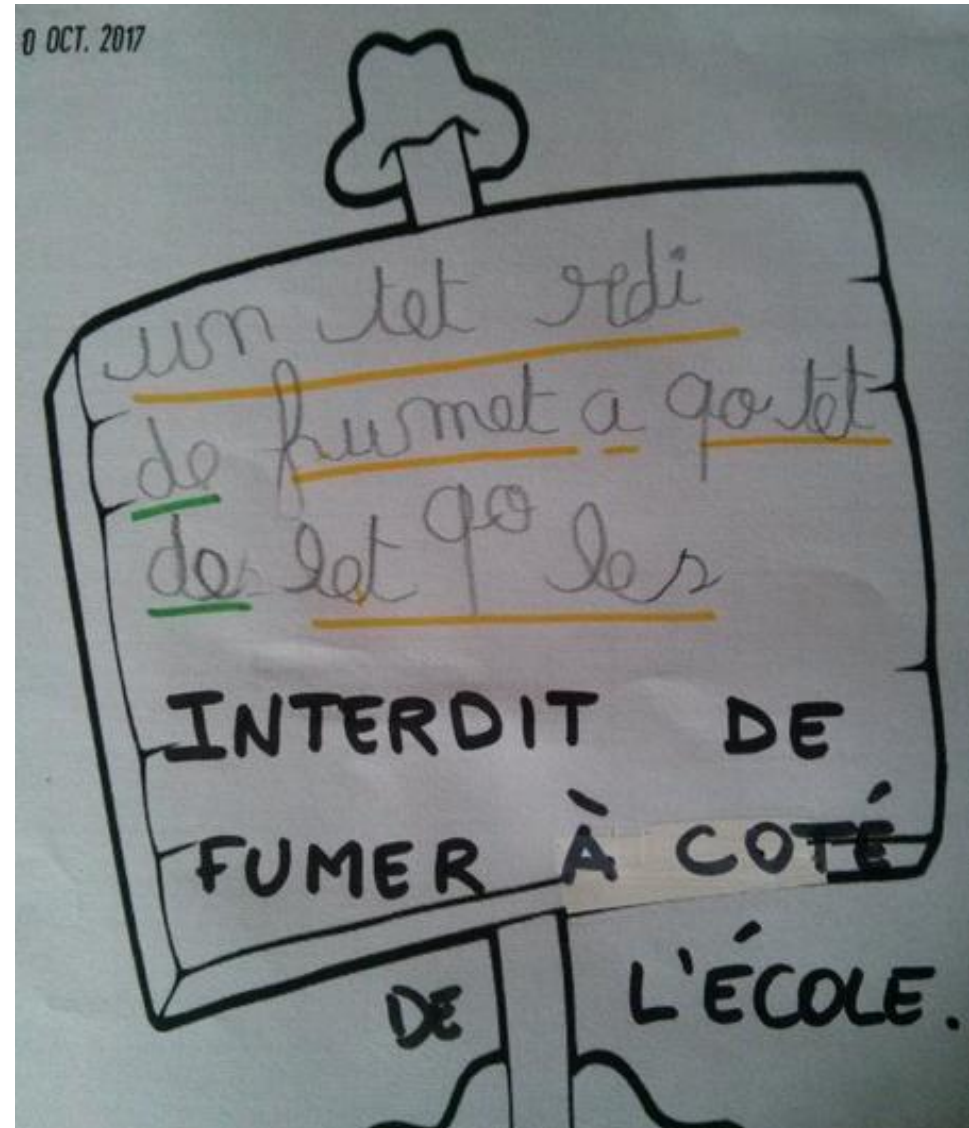 0 OCT. 2017
un tet rdi
de fumet a qo tet
de let qo les
INTERDIT DE
FUMER À COTÉ
DE L'ÉCOLE.